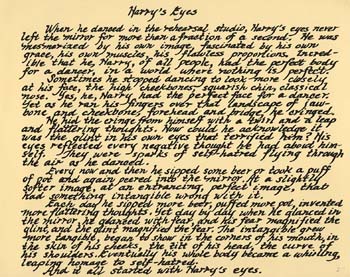 Harry's Eyes
When he danced in the rehearsal studio, Harry's eyes never
left the mirror for more than a fraction of a second. He was
mesmerized by his own image, fascinated by his own
grace, his own muscles, his flawless proportions. Incred-
ible that he, Harry, of all people, had the perfect body
for a dancer, in a world where nothing is perfect.
Sometimes he stopped dancing to look more closely,
at his face, the high cheekbones, squarish chin, classical
nose. Yes, he, Harry, had the perfect face for a dancer.
Yet as he ran his fingers over that landscape of jaw-
bone and cheekbones, forehead and bridge, he cringed.
He hid the cringe from himself with a twirl and a leap
and flattering thoughts. How could he acknowledge it
was the glint in his own eyes that terrified him? His
eyes reflected every negative thought he had about him-
self. They were sparks of self-hatred flying through
the air as he danced.
Every now and then he sipped some beer or took a puff
of pot and again peered into the mirror. At a slightly
softer image, at an entrancing, perfect image, that
had something intangible wrong with it.
Each day he sipped more beer, puffed more pot, invented
more flattering thoughts. Yet day by day when he glanced in
the mirror, he glanced with fear, and his fear magnified the
glint, and the glint magnified the fear. The intangible grew
more tangible, began to show in the corners of his mouth, in
the skin of his cheeks, the tilt of his head, the curve of
his shoulders. Eventually his whole body became a whirling,
leaping homage to self-hatred.
And it all started with Harry's eyes.